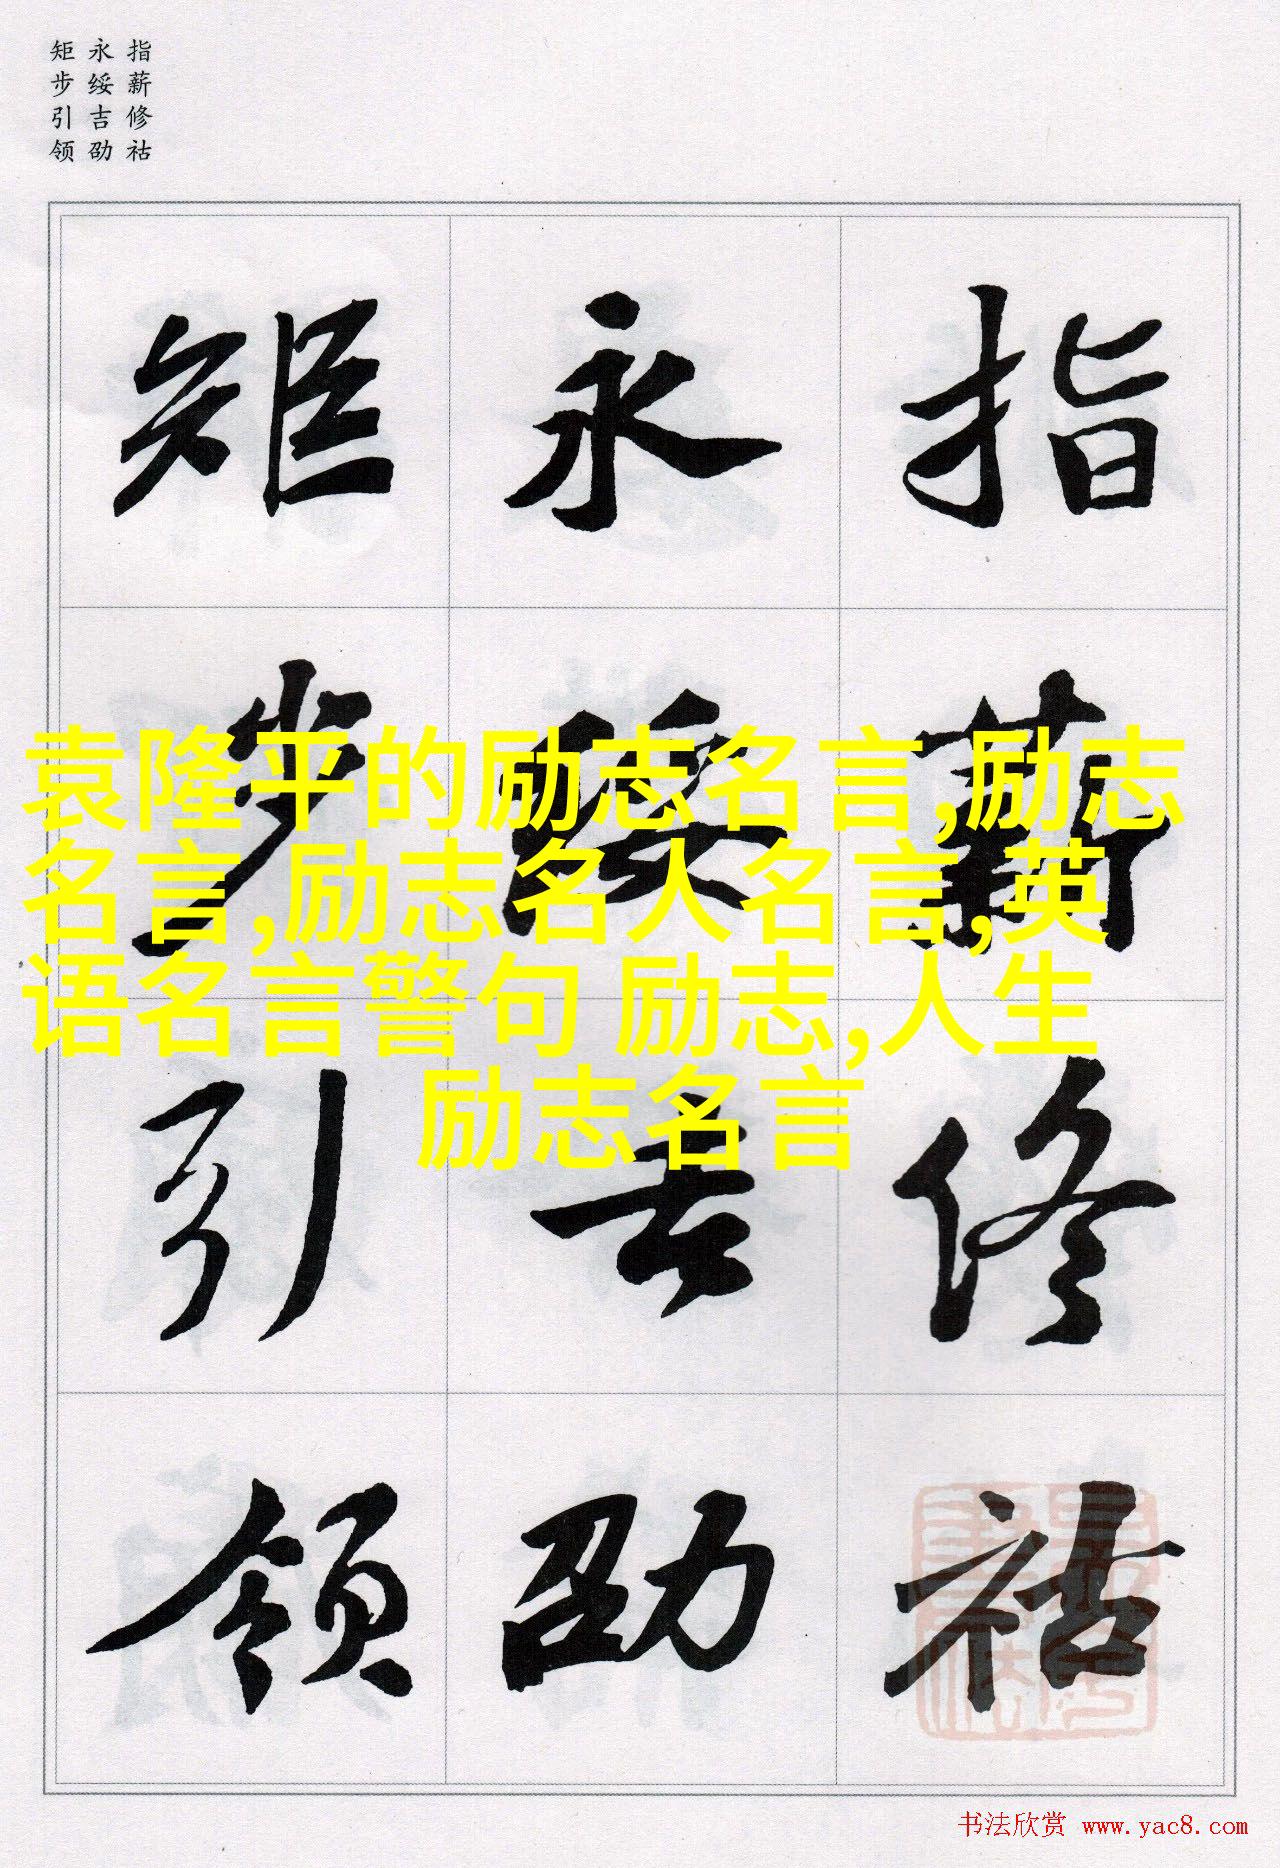 指薪修祜
永绥吉劭
矩步引领
指薪修祜
永绥吉劭
矩步引领
袁隆平的励志名言,励志
名言,励志名人名言,英
语名言警句 励志,人生
励志名言
书法欣赏 www.yac8.com